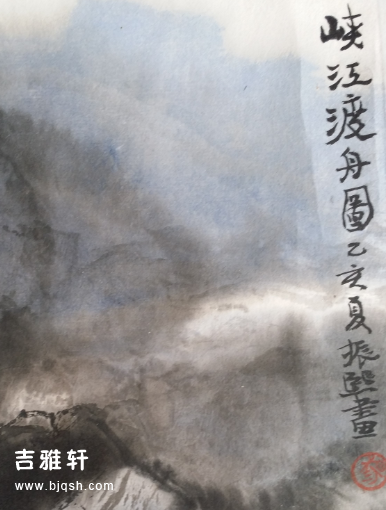 峡江渡舟圖乙亥夏振熙畫
吉雅轩
www.bjqsh.com